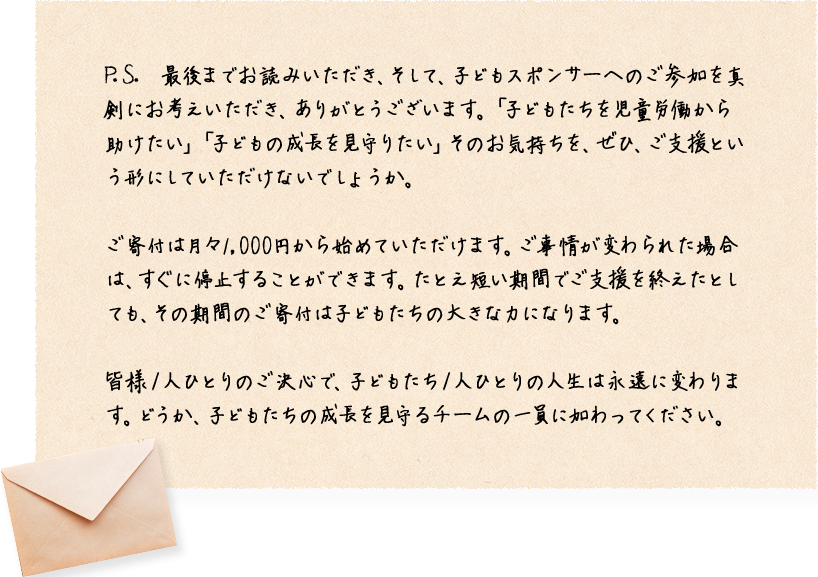 P.S. 最後までお読みいただき、そして、子どもスポンサーへのご参加を真
剣にお考えいただき、ありがとうございます。「子どもたちを児童労働から
助けたい」「子どもの成長を見守りたい」そのお気持ちを、ぜひ、ご支援とい
う形にしていただけないでしょうか。
ご寄付は月々1,000円から始めていただけます。ご事情が変わられた場合
は、すぐに停止することができます。たとえ短い期間でご支援を終えたとし
ても、その期間のご寄付は子どもたちの大きな力になります。
皆様1人ひとりのご決心で、子どもたち1人ひとりの人生は永遠に変わりま
す。どうか、子どもたちの成長を見守るチームの一員に加わってください。